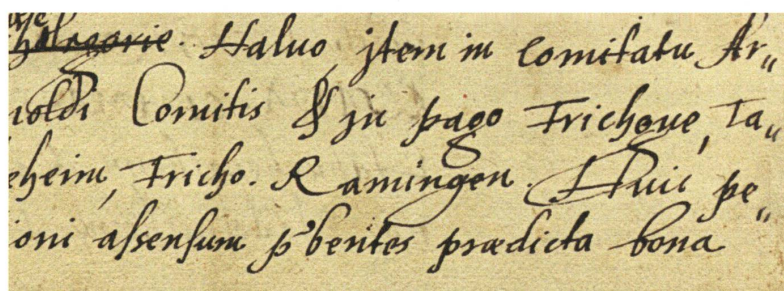 Haluo, jtem in Comitatu Ar„
noldi Comitis & jn pago Trichoue, Ta„
eheim, Tricho. Ramingen. Huic pe„
ioni assensum p'bentes prædicta bona